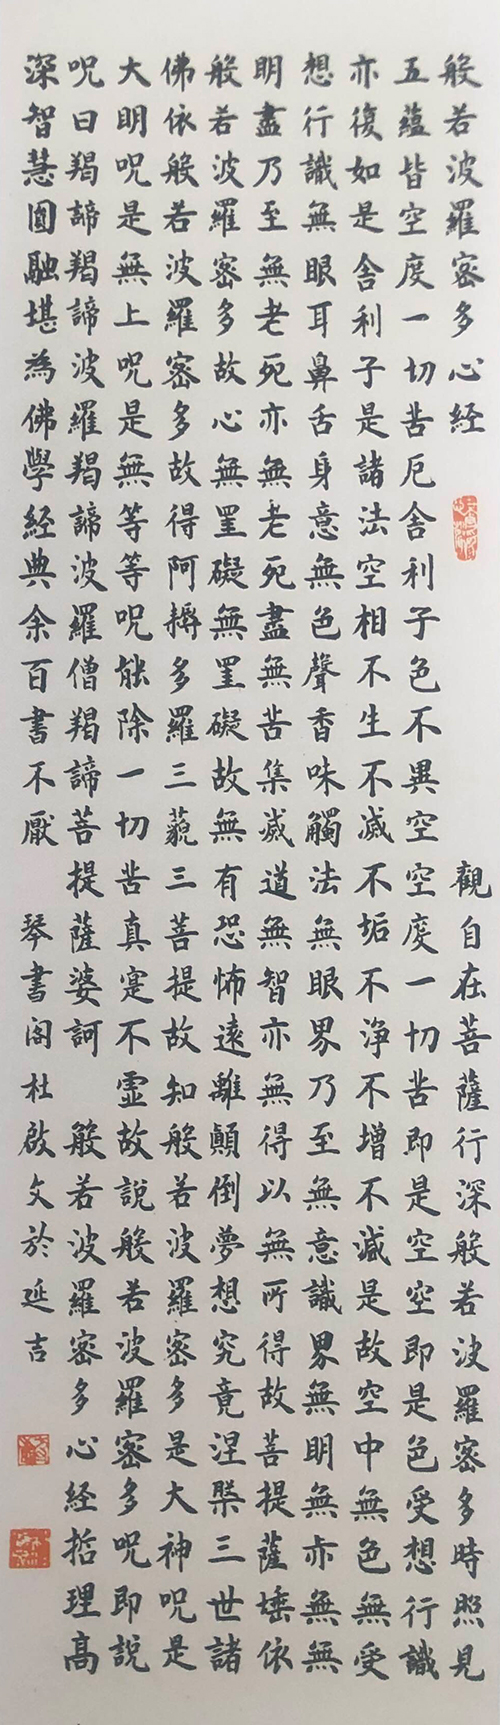 般若波羅密多心経 觀自在菩薩行深般若波羅密多時照見
五蘊皆空度一切苦厄舍利子色不異空空度一切苦即是空空即是色受想行識
亦復如是舍利子是諸法空相不生不滅不垢不淨不增不減是故空中無色無受
想行識無眼耳鼻舌身意無色聲香味觸法無眼界乃至無意識界無明無亦無無
明盡乃至無老死亦無老死盡無苦集滅道無智亦無得以無所得故菩提薩埵依
般若波羅密多故心無罣礙無罣礙故無有恐怖遠離顛倒夢想究竟涅槃三世諸
佛依般若波羅密多故得阿耨多羅三藐三菩提故知般若波羅密多是大神呪是
大明呪是無上呪是無等等呪能除一切苦真寔不虛故說般若波羅密多呪即說
呪曰羯諦羯諦波羅羯諦波羅僧羯諦菩提薩婆訶 般若波羅密多心経哲理高
深智慧圓融堪為佛學経典余百書不厭 琴書閣杜啟文於延吉